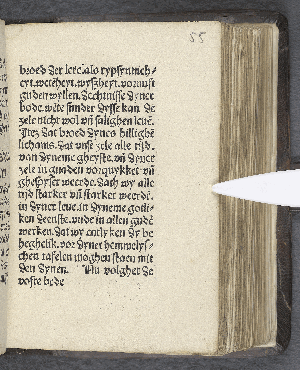 55
broed der lere. alo rypsynnich⸗
eyt. weteheyt. wyszheyt. vornuft
guden wyllen. dechtnisse dyner
bode. wēte sunder dysse kan de
zele nicht wol vñ salighen leuē.
Item dat broed dynes hillighē
lichams. dat vnse zele alle tijd.
van dyneme gheyste. vñ dyner
zele in gnaden vorquycket vñ
ghespyset weerde. dath wy alle
tijd starker vñ starker weerdē.
in dyner leue. in dyneme gotli⸗
ken deenste. vnde in allen gudē
werken. dat wy entlyken dy be
heghelik. vor dyner hemmelys⸗
chen tafelen moghen staen mit
den dynen. Nu volghet de
vofte bede